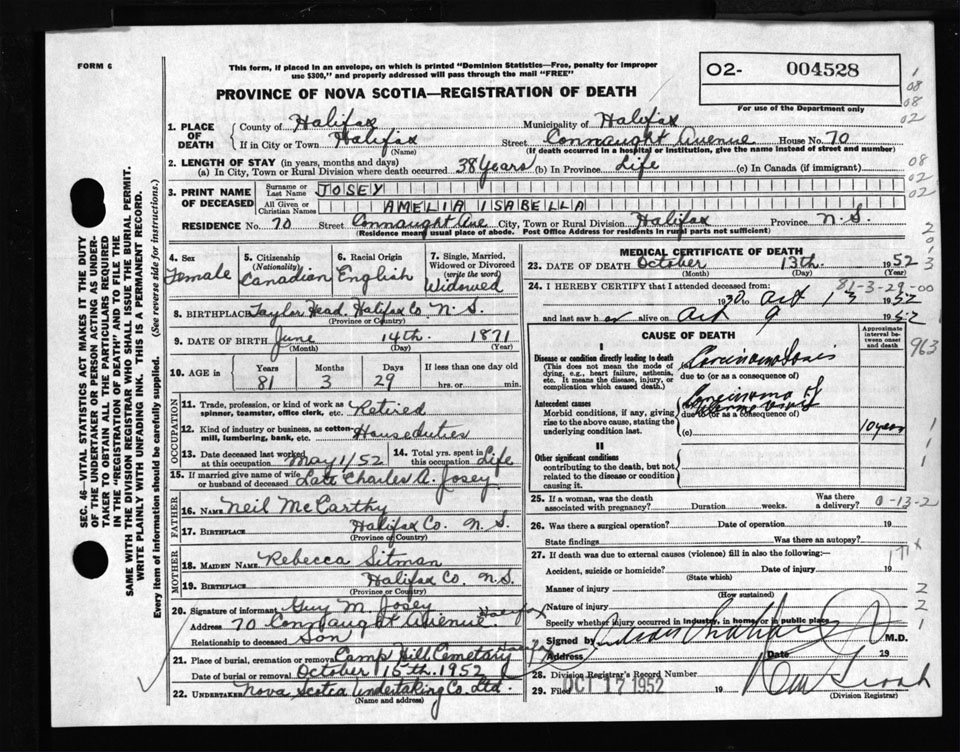 FORM 6
This form, if placed in an envelope, on which is printed "Dominion Statistics—Free, penalty for improper
use $300," and properly addressed will pass through the mail "FREE"
PROVINCE OF NOVA SCOTIA—REGISTRATION OF DEATH
O2- 004528
For use of the Department only
1
08
08
02
1. PLACE OF DEATH
County of Halifax Municipality of Halifax
If in City or Town Halifax Street Connaught Avenue House No. 70
(Name) (If death occurred in a hospital or institution, give the name instead of street and number)
2. LENGTH OF STAY (in years, months and days)
(a) In City, Town or Rural Division where death occurred 38 Years (b) In Province Life (c) In Canada (if immigrant)
08
02
02
3. PRINT NAME OF DECEASED
Surname or Last Name JOSEY
All Given or Christian Names AMELIA ISABELLA
RESIDENCE No. 70 Street Connaught Ave City, Town or Rural Division Halifax Province N.S.
(Residence means usual place of abode. Post Office Address for residents in rural parts not sufficient)
4. Sex
Female
5. Citizenship
(Nationality)
Canadian
6. Racial Origin
English
7. Single, Married,
Widowed or Divorced
(write the word)
Widowed
8. BIRTHPLACE Taylor Head. Halifax Co. N.S.
(Province or Country)
9. DATE OF BIRTH June 14th. 1871
(Month) (Day) (Year)
10. AGE in
Years Months Days If less than one day old
81 3 29 hrs. or min.
OCCUPATION
11. Trade, profession, or kind of work as
spinner, teamster, office clerk, etc. Retired
12. Kind of industry or business, as cotton-
mill, lumbering, bank, etc. House duties
13. Date deceased last worked
at this occupation May 1/52
14. Total yrs. spent in
this occupation Life
15. If married give name of wife
or husband of deceased Late Charles A. Josey
FATHER
16. NAME Neil McCarthy
17. BIRTHPLACE Halifax Co. N.S.
(Province or Country)
MOTHER
18. MAIDEN NAME Rebecca Sitman
19. BIRTHPLACE Halifax Co. N.S.
(Province or Country)
20. Signature of informant Guy M. Josey
Address 70 Connaught Avenue. Halifax
Relationship to deceased Son
21. Place of burial, cremation or removal Camp Hill Cemetary Halifax
Date of burial or removal October 15th. 1952
22. UNDERTAKER Nova Scotia Undertaking Co. Ltd.
(Name and address)
MEDICAL CERTIFICATE OF DEATH
23. DATE OF DEATH October 13th. 1952
(Month) (Day) (Year)
24. I HEREBY CERTIFY that I attended deceased from: 81-3-29-00
1930 to Oct 13 1952
and last saw her alive on Oct 9 1952
CAUSE OF DEATH
Approximate
interval between
onset
and death
963
I
Disease or condition directly leading to death
(This does not mean the mode of
dying, e.g., heart failure, asthenia,
etc. It means the disease, injury, or
complication which caused death.)
(a) Carcinomatosis
due to (or as a consequence of)
Antecedent causes
Morbid conditions, if any, giving
rise to the above cause, stating the
underlying condition last.
Carcinoma of
due to (or as a consequence of)
(c)
10 years
II
Other significant conditions
contributing to the death, but not
related to the disease or condition
causing it.
25. If a woman, was the death
associated with pregnancy? Duration weeks. Was there
a delivery? 0-13-2
26. Was there a surgical operation? Date of operation 19
State findings Was there an autopsy?
27. If death was due to external causes (violence) fill in also the following:—
171x
Accident, suicide or homicide? Date of injury 19
(State which)
Manner of injury
(How sustained)
Nature of injury
Specify whether injury occurred in industry, in home, or in public place
Signed by M.D.
Address Date 19
28. Division Registrar's Record Number
29. Filed OCT 17 1952 19
(Division Registrar)
SEC. 46—VITAL STATISTICS ACT MAKES IT THE DUTY
OF THE UNDERTAKER OR PERSON ACTING AS UNDER-
TAKER TO OBTAIN ALL THE PARTICULARS REQUIRED
IN THE "REGISTRATION OF DEATH" AND TO FILE THE
SAME WITH THE DIVISION REGISTRAR WHO SHALL ISSUE THE BURIAL PERMIT.
WRITE PLAINLY WITH UNFADING INK. THIS IS A PERMANENT RECORD.
Every item of information should be carefully supplied. (See reverse side for instructions.)